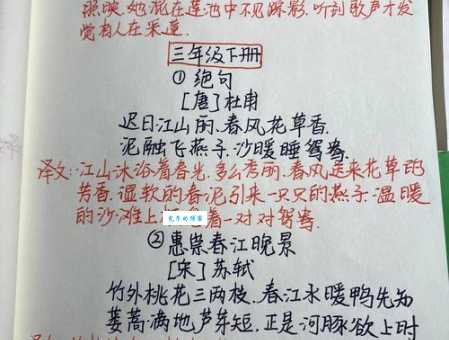 照映,她混在莲池中不见踪影,听到歌声才发
觉有人在采莲.
三年级下册
① 绝句
[唐]杜甫
迟日江山丽.春风花草香.
泥融飞燕子.沙暖睡鸳鸯.
译文:江山沐浴着春光,多么秀丽,春风送来花草的
芳香.湿软的春泥引来一只只的燕子.温暖
的沙滩上 着一对对鸳鸯.
② 惠崇春江晚景
[宋]苏轼
竹外桃花三两枝.春江水暖鸭先知
蒌蒿满地芦芽短.正是河豚欲上时